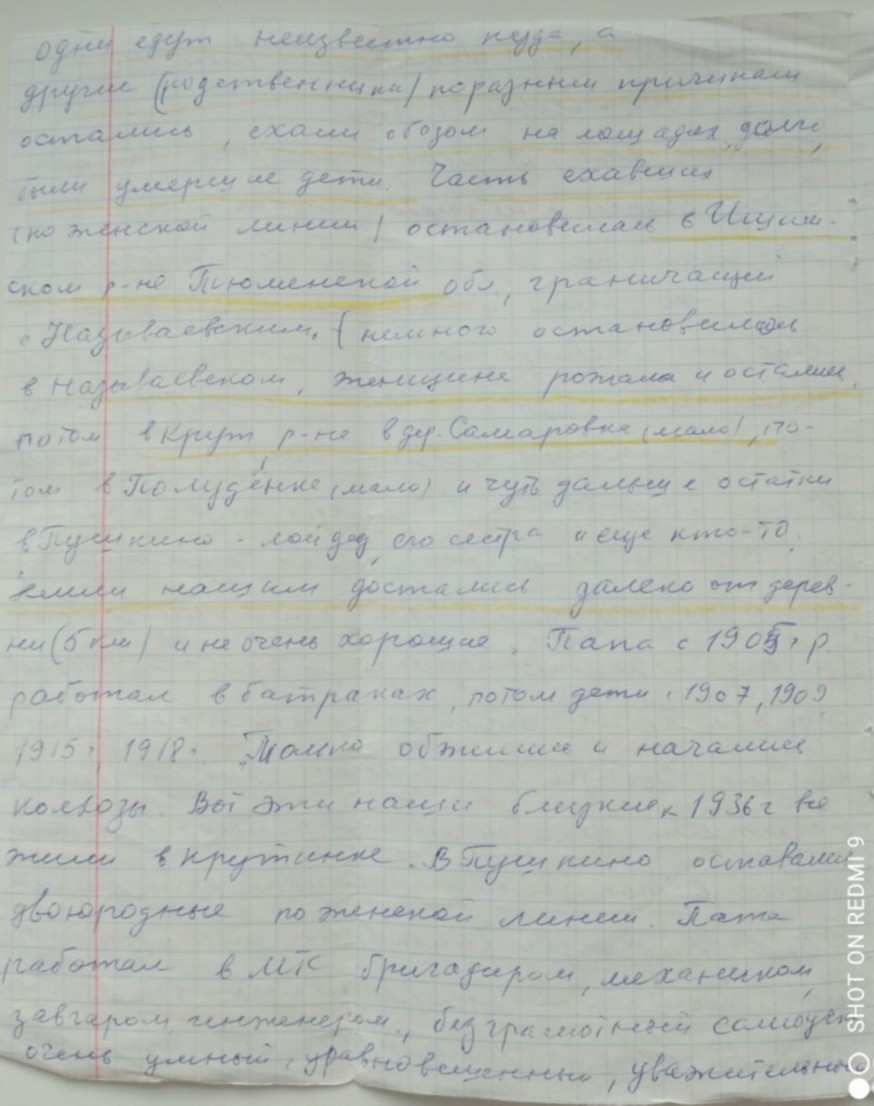 одни едут неизвестно куда, а
другие (родственники) по разным причинам
остались, ехали обозом на лощадях, долго,
были умерщие дети. Часть ехавших
(по женской линии) остановились в Ишим-
ском р-не Тюменской обл., граничащей
с Называевским. (немного остановились
в Называевском, женщина рожала и остались,
потом в Крут. р-не в дер. Самаровка (мало), по-
том в Полудёнке (мало) и чуть дальше остатки
в Пушкино - мой дед, его сестра и еще кто-то.
Земли нашим достались далеко от дерев-
ни (5 км) и не очень хорошие. Папа с 1905 г. р.
работал в батраках, потом дети с 1907, 1909,
1915 г., 1918 г. Только обжились и начались
колхозы. Вот эти наши близкие к 1936 г все
жили в Крутинке. В Пушкино оставались
двоюродные по женской линии. Папа
работал в МТС бригадиром, механиком,
завгаром, инженером, безграмотный самоучка
очень умный, уравновешенный, уважительный
SHOT ON REDMI 9